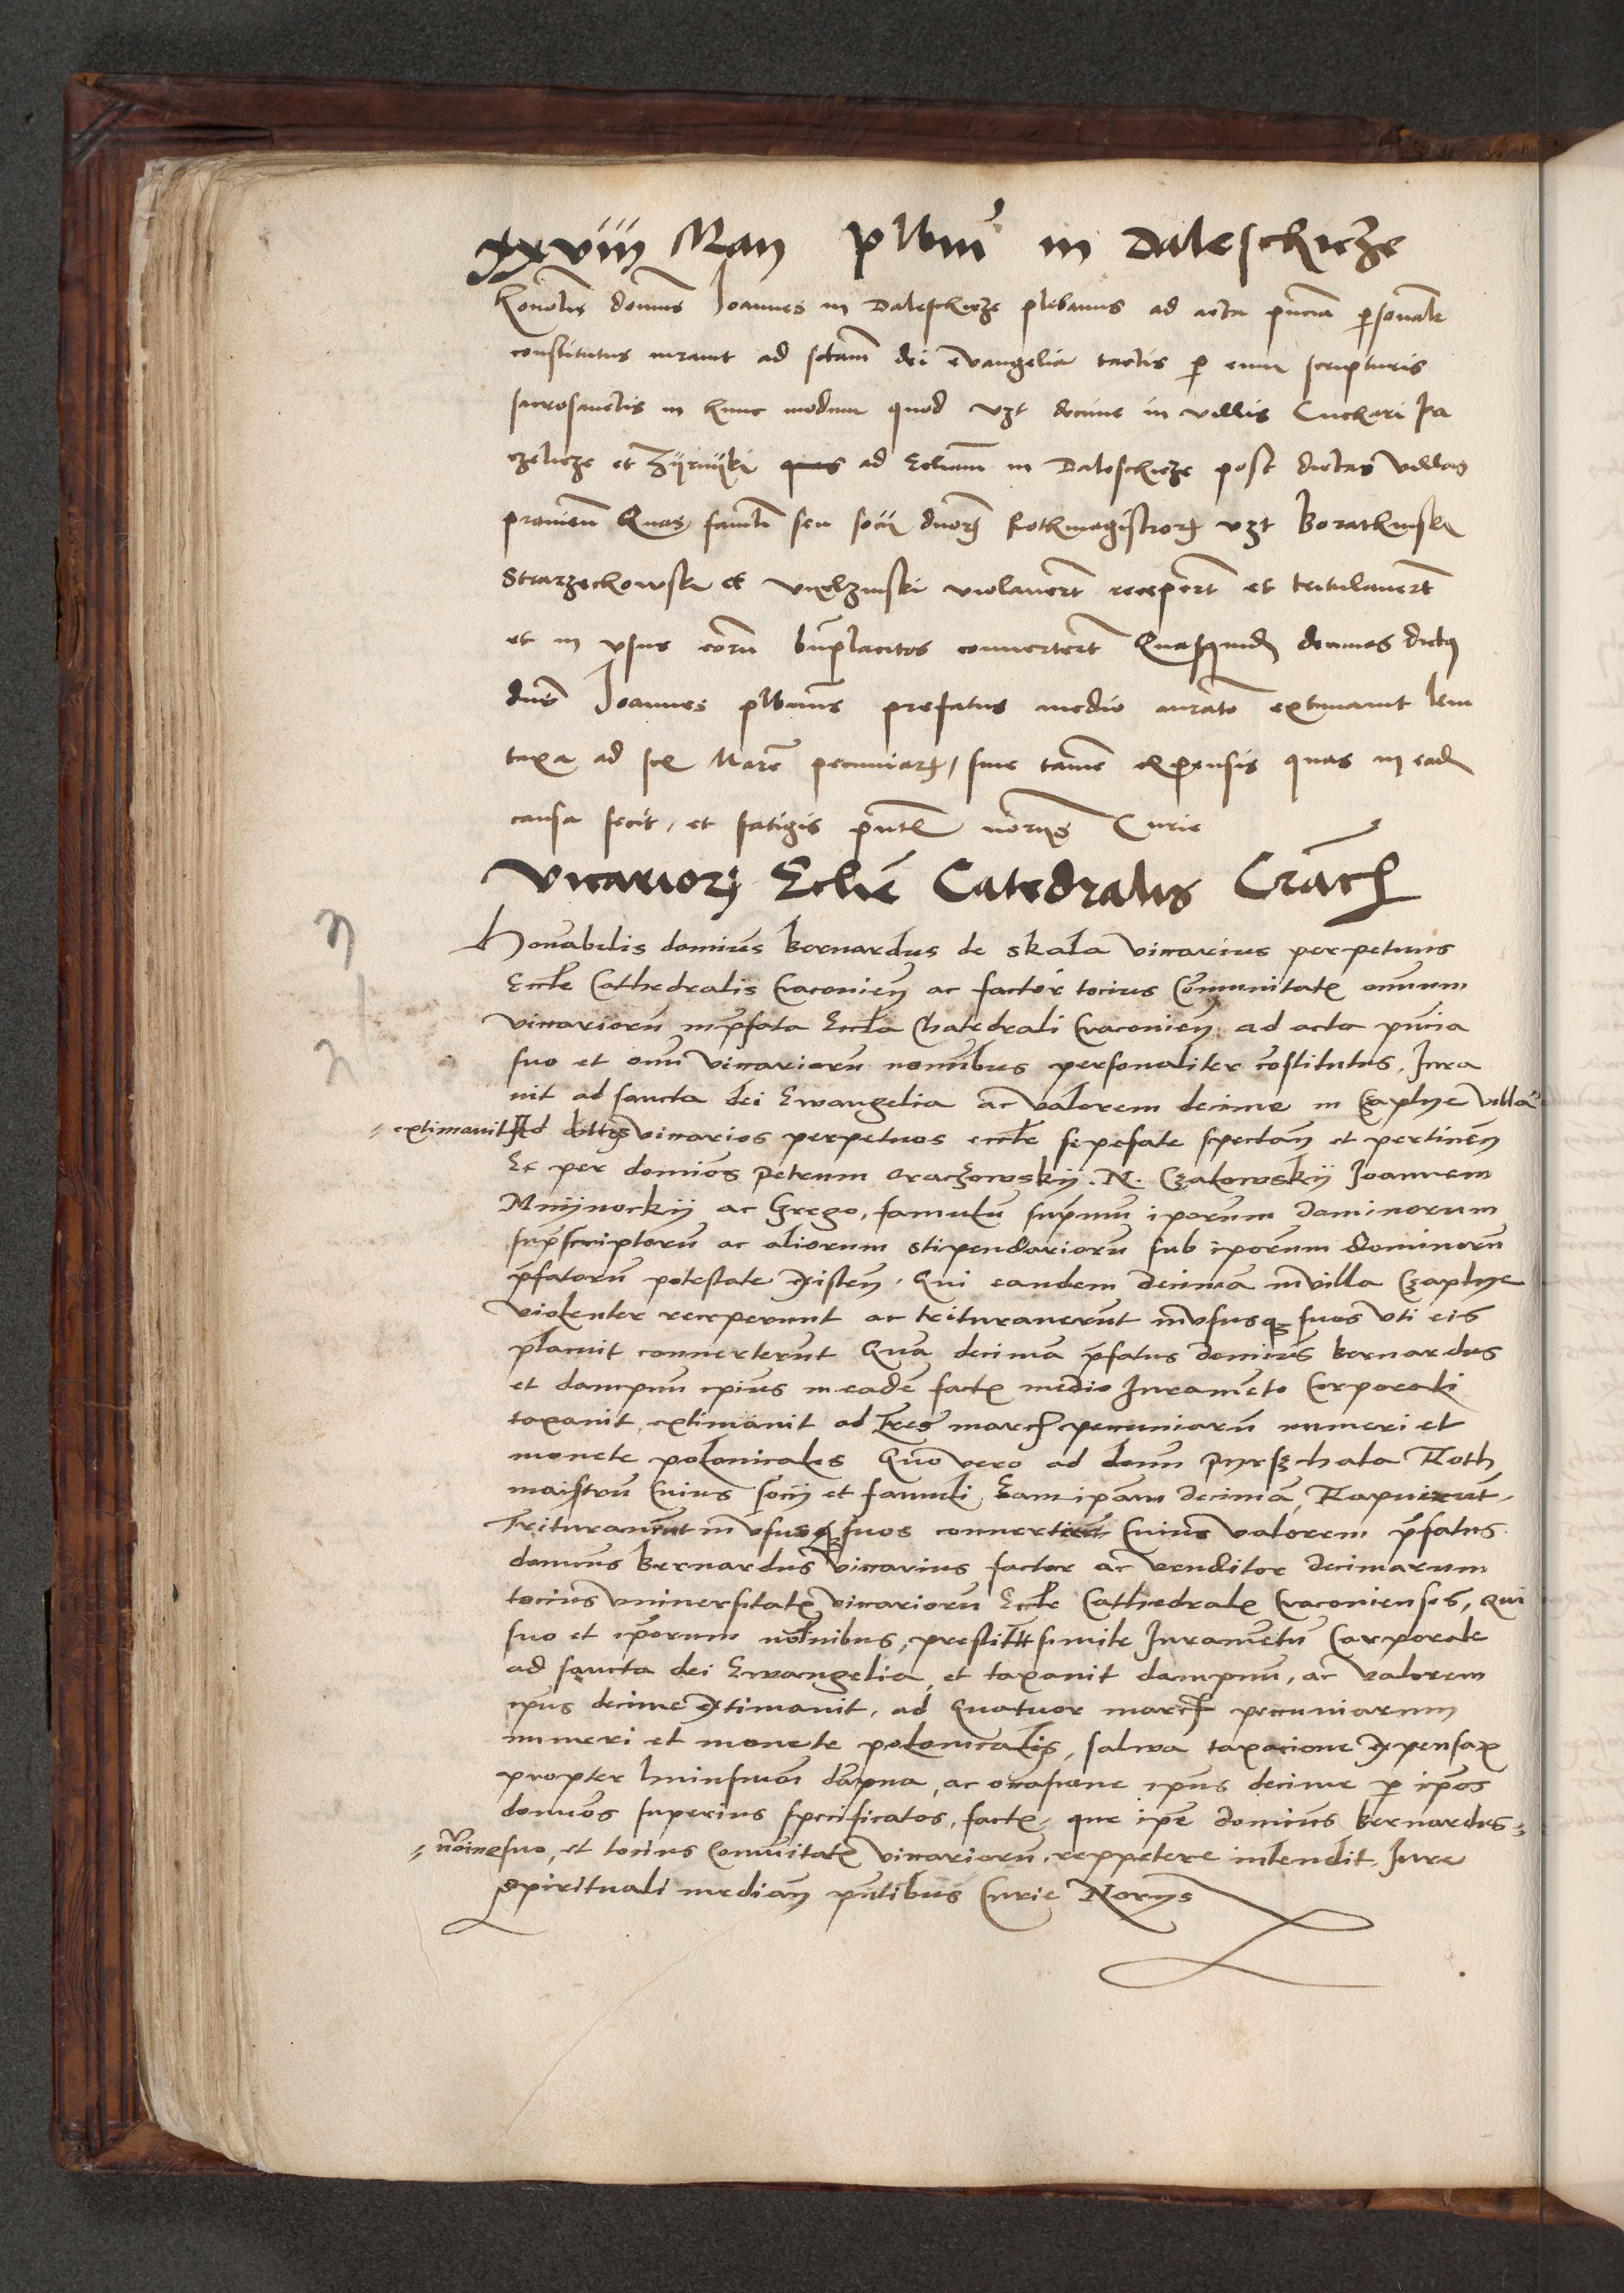 xxviii Man plbni in Daleschicze
honolis domns Joannes in Daleschicze plebanus ad acta pncia psonalr
constitutus iurauit ad sctam dei evangelia tactis p eum scripturis
sacrosanctis in hunc modum quod vzt decime in villis Cuckari Ra
czelicze et Zÿrnÿki ad Ecliam in Daleschicze post dictas villas
prouien Quas famli seu socii dnorz Rothmagistrorz vzt Borathinski
Strarzechowski et violauert recepert et tritulauert
et in vsus eorum bnplacitos conuertert Quasquid decimas dictus
dns Joannes plbanus prefatus medio iurato extimauit
taxa ad sex Marc pecuniarz, sine tamen expensis quas in ead
causa fecit, et fatigis pntl norijs Curie
Vicariorz Eclie Catedralis Crach
Honorabilis dominus Bernardus de Skala vicarius perpetuus
Eccle Cathedralis Cracouien ac factor tocius Comunitatis omnium
vicariorum in pfata Eccla Chatedrali Cracouien ad acta pncia
suo et omni vicariorum nomibus personaliter costitutus, Jura
uit ad sancta dei Ewangelia ac valorem decime in Czaplye villa
extimauit Ad dittos vicarios perpetuos eccle sepefate spectan et pertinen
Et per dominos Petrum Orachowskij. N. Czalowskij Joannem
Mnijnockij ac Grego, famulum suprmum iporum dominorum
suprscriptorum ac aliorum stipendariorum sub iporum dominorum
pfatorum potestate existen, Qui eandem decimam in villa Czaplye
violenter receperunt ac trituraverunt in vsusqz suos vti eis
placuit conuerterunt Qua decima pfatus dominus Bernardus
et dampnum ipius in eade facte medio Juramento Corporali
taxauit extimauit ad Tres march pecuniarum numeri et
monete polonicales Quo vero ad domi Pyrszchala Roth
maistrum Cuius socij et famuli Eam ipam decimam Rapuerunt
Triturauerunt in vsusqz suos conuerterunt Cuius valorem pfatus
domnus Bernardus vicarius factor ac venditor decimarum
tocius vniuersitatis vicariorum Eccle Cathedralis Cracouiensis, Qui
suo et iporum nominibus, prestitit simile Juramentum Corporale
ad sancta dei Ewangelia, et taxauit dampnum, ac valorem
ipius decime extimauit, ad Quatuor march pecuniarum
numeri et monete polonicalis, salva taxacione expensarum
propter huiusmodi dapna, ac occasione ipius decime p ipos
domnos superius specificatos, facte, que ipe dominus Bernardus
noine suo, et tocius Comunitatis vicariorum, reppetere intendit Jure
Spirituali median pntibus Curie Norijs